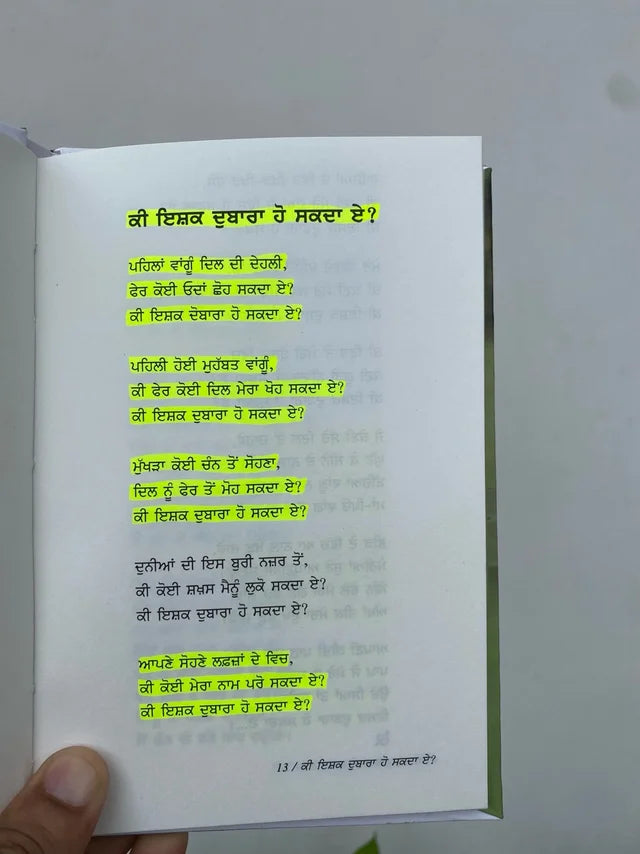 ਕੀ ਇਸ਼ਕ ਦੁਬਾਰਾ ਹੋ ਸਕਦਾ ਏ?
ਪਹਿਲਾਂ ਵਾਂਗੂੰ ਦਿਲ ਦੀ ਦੇਹਲੀ,
ਫੇਰ ਕੋਈ ਓਦਾਂ ਛੋਹ ਸਕਦਾ ਏ?
ਕੀ ਇਸ਼ਕ ਦੋਬਾਰਾ ਹੋ ਸਕਦਾ ਏ?
ਪਹਿਲੀ ਹੋਈ ਮੁਹੱਬਤ ਵਾਂਗੂੰ,
ਕੀ ਫੇਰ ਕੋਈ ਦਿਲ ਮੇਰਾ ਖੋਹ ਸਕਦਾ ਏ?
ਕੀ ਇਸ਼ਕ ਦੁਬਾਰਾ ਹੋ ਸਕਦਾ ਏ?
ਮੁੱਖੜਾ ਕੋਈ ਚੰਨ ਤੋਂ ਸੋਹਣਾ,
ਦਿਲ ਨੂੰ ਫੇਰ ਤੋਂ ਮੋਹ ਸਕਦਾ ਏ?
ਕੀ ਇਸ਼ਕ ਦੁਬਾਰਾ ਹੋ ਸਕਦਾ ਏ?
ਦੁਨੀਆਂ ਦੀ ਇਸ ਬੁਰੀ ਨਜ਼ਰ ਤੋਂ,
ਕੀ ਕੋਈ ਸ਼ਖ਼ਸ ਮੈਨੂੰ ਲੁਕੋ ਸਕਦਾ ਏ?
ਕੀ ਇਸ਼ਕ ਦੁਬਾਰਾ ਹੋ ਸਕਦਾ ਏ?
ਆਪਣੇ ਸੋਹਣੇ ਲਫ਼ਜ਼ਾਂ ਦੇ ਵਿਚ,
ਕੀ ਕੋਈ ਮੇਰਾ ਨਾਮ ਪਰੋ ਸਕਦਾ ਏ?
ਕੀ ਇਸ਼ਕ ਦੁਬਾਰਾ ਹੋ ਸਕਦਾ ਏ?
13 / ਕੀ ਇਸ਼ਕ ਦੁਬਾਰਾ ਹੋ ਸਕਦਾ ਏ?